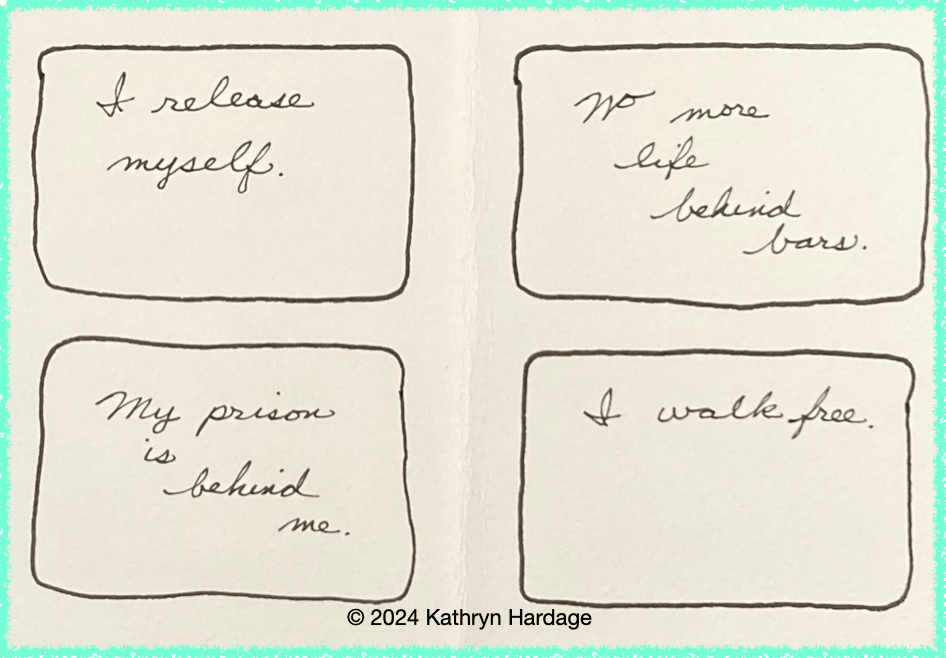 I release
myself.
No more
life
behind
bars.
My prison
is
behind
me.
I walk free.
© 2024 Kathryn Hardage